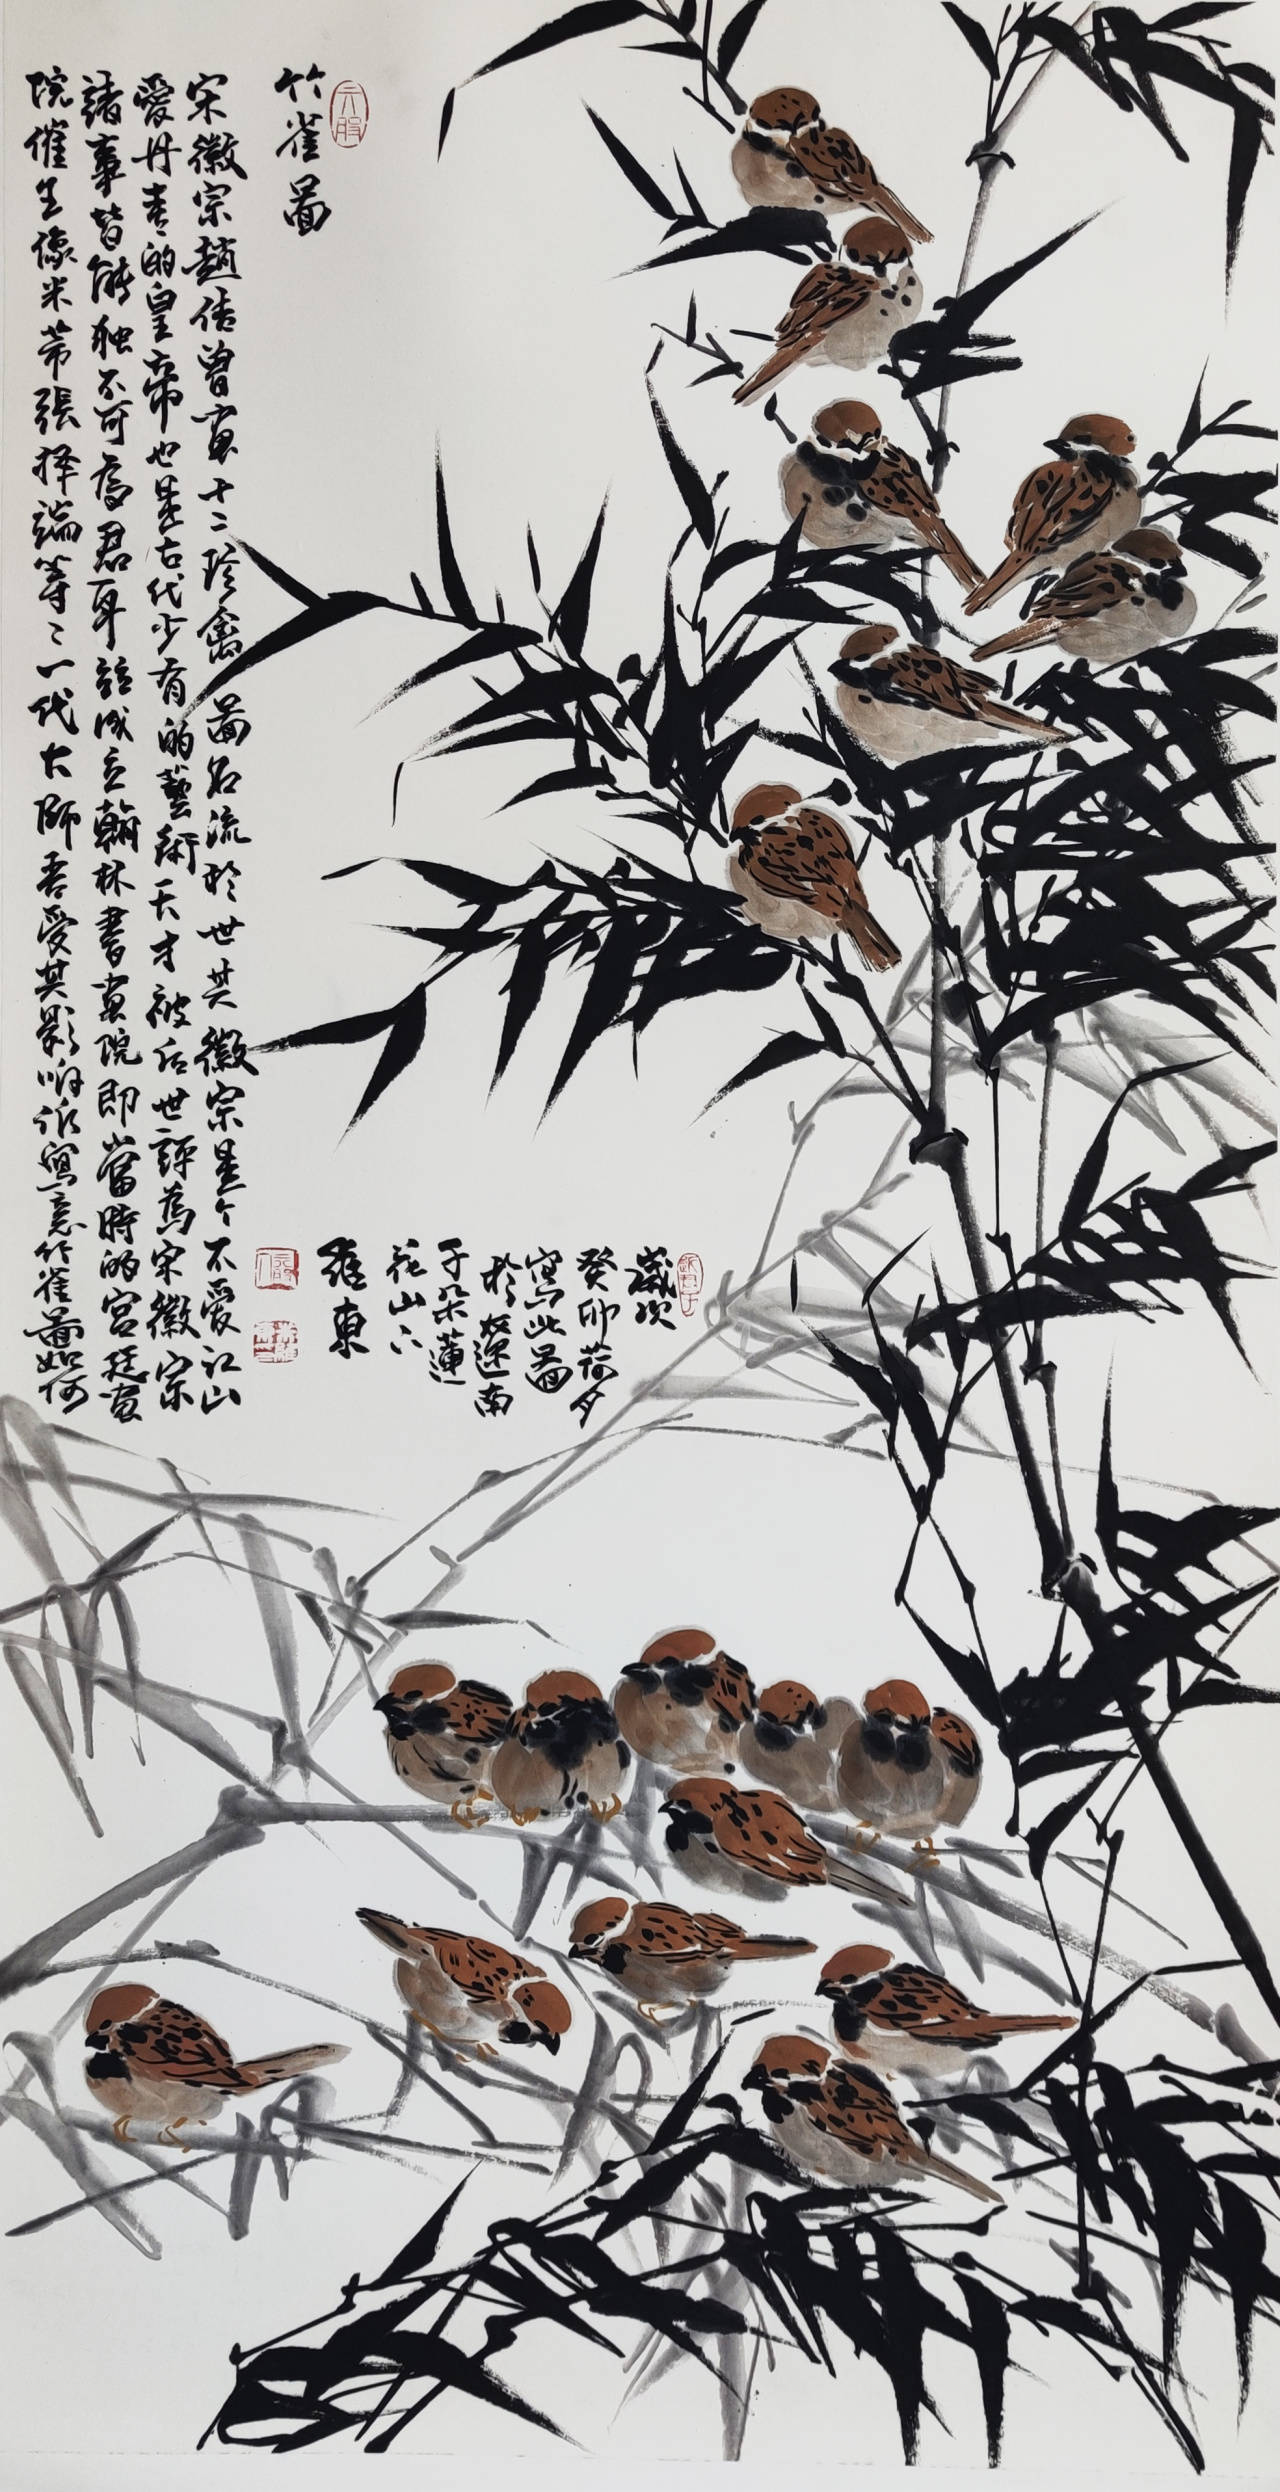 竹雀圖
宋徽宗趙佶曾畫十二珍禽圖名流於世其徽宗是个不愛江山
愛丹青的皇帝也是古代少有的藝術天才被后世評爲宋徽宗
諸事皆能独不可爲君耳 成立翰林書畫院即當時的宮廷畫
院催生像米芾張择端等等一代大師吾受其影响 寫意竹雀圖如何
歲次
癸卯荷夕
寫此圖
於 遼南
千朵蓮
花山下
東